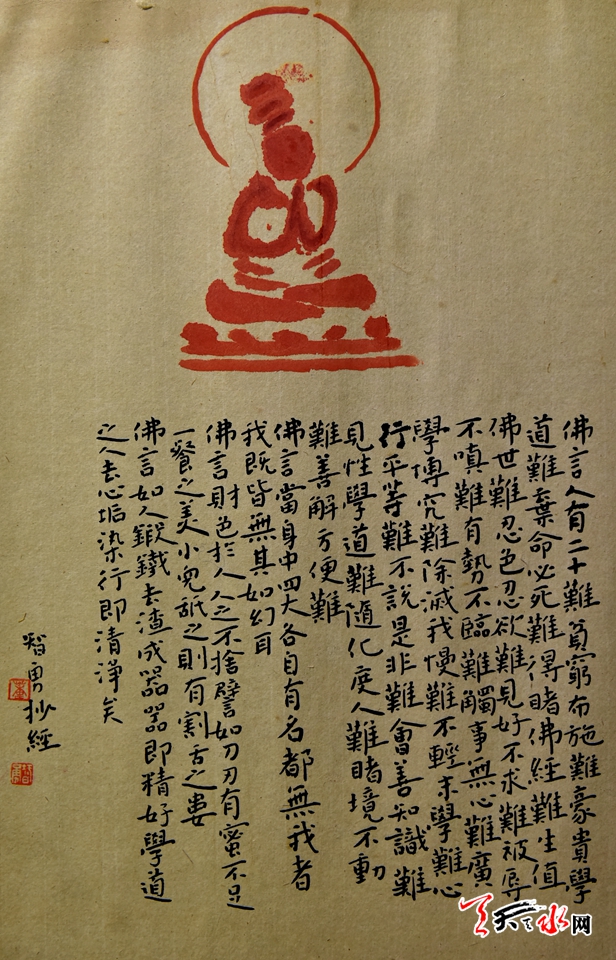 佛言人有二十難貧窮布施難豪貴學
道難棄命必死難得睹佛經難生值
佛世難忍色忍欲難見好不求難被辱
不嗔難有勢不臨難觸事無心難廣
學博究難除滅我慢難不輕末學難心
行平等難不說是非難會善知識難
見性學道難隨化度人難睹境不動
難善解方便難
佛言當身中四大各自有名都無我者
我既皆無其如幻耳
佛言財色於人人之不捨譬如刀刃有蜜不足
一餐之美小兒舐之則有割舌之患
佛言如人鍛鐵去渣成器器即精好學道
之人去心垢染行即清淨矣
智勇抄經
天天天水网